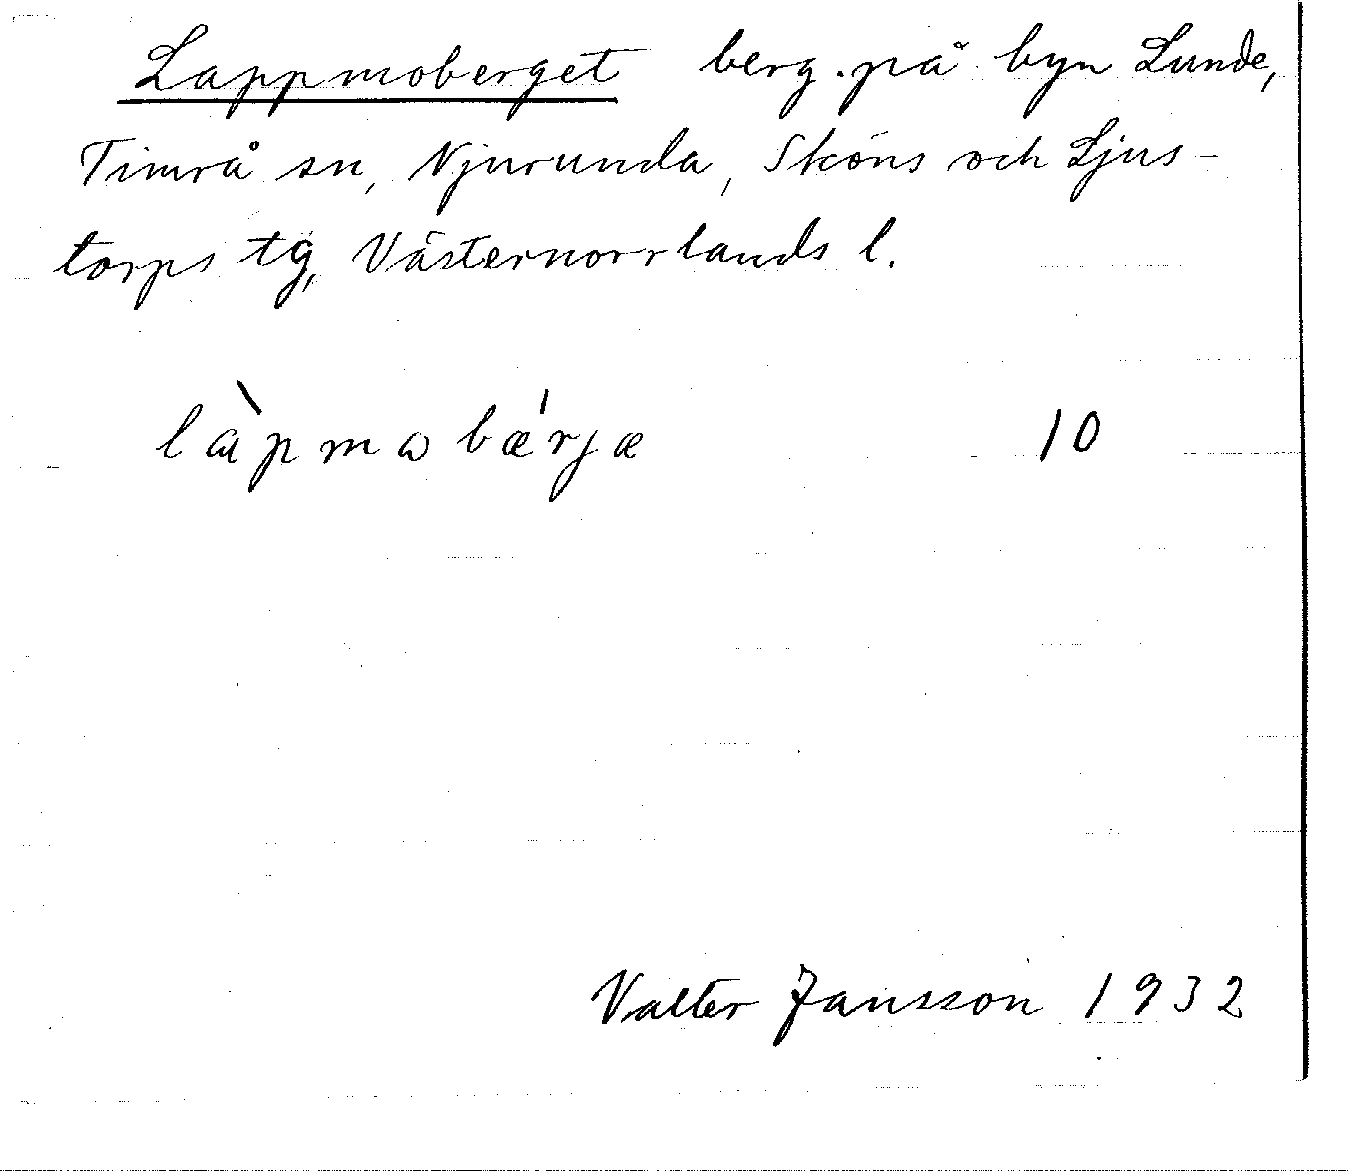 Lappmoberget berg på byn Lunde,
Timrå sn, Njurunda, Sköns och Ljus-
torps tg, Västernorrlands l.
là̀pmωbæ̀rjæ 10
Valter Jansson 1932